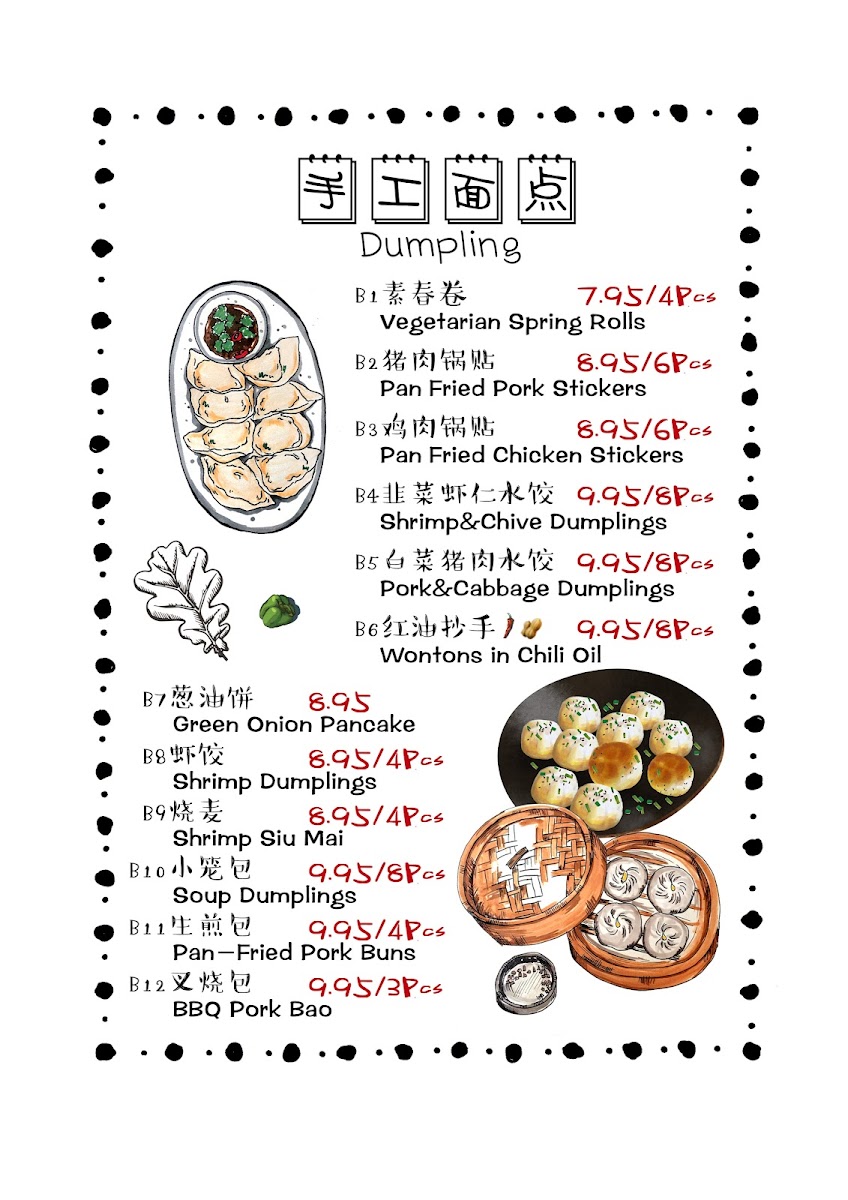 手工面点
Dumpling
B1素春卷 7.95/4Pcs
Vegetarian Spring Rolls
B2猪肉锅贴 8.95/6Pcs
Pan Fried Pork Stickers
B3鸡肉锅贴 8.95/6Pcs
Pan Fried Chicken Stickers
B4韭菜虾仁水饺 9.95/8Pcs
Shrimp&Chive Dumplings
B5白菜猪肉水饺 9.95/8Pcs
Pork&Cabbage Dumplings
B6红油抄手 9.95/8Pcs
Wontons in Chili Oil
B7葱油饼 8.95
Green Onion Pancake
B8虾饺 8.95/4Pcs
Shrimp Dumplings
B9烧麦 8.95/4Pcs
Shrimp Siu Mai
B10小笼包 9.95/8Pcs
Soup Dumplings
B11生煎包 9.95/4Pcs
Pan-Fried Pork Buns
B12叉烧包 9.95/3Pcs
BBQ Pork Bao